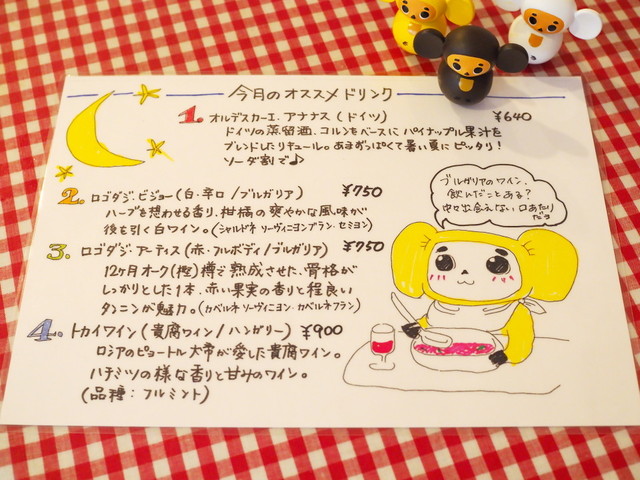 今月のオススメドリンク
1. オルデスカーエ.アナナス(ドイツ) ¥640
ドイツの蒸留酒.コルンをベースに パイナップル果汁を
ブレンドしたリキュール。あまずっぱくて暑い夏にピッタリ!
ソーダ割で♪
2. ロゴダジ.ビジョー(白.辛口/ブルガリア) ¥750
ハーブを想わせる香り.柑橘の爽やかな風味が
後を引く白ワイン。(シャルドネ ソーヴィニヨンブラン.セミヨン)
3. ロゴダジ.アーティス(赤.フルボディ/ブルガリア) ¥750
12ヶ月オーク(樫)樽で熟成させた.骨格が
しっかりとした1本.赤い果実の香りと程良い
タンニンが魅力。(カベルネソーヴィニヨン.カベルネフラン)
4. トカイワイン(貴腐ワイン/ハンガリー) ¥900
ロシアのピョートル大帝が愛した貴腐ワイン。
ハチミツの様な香りと甘みのワイン。
(品種:フルミント)
ブルガリアのワイン.
飲んだことある?
中々出会えない口あたり
だョ